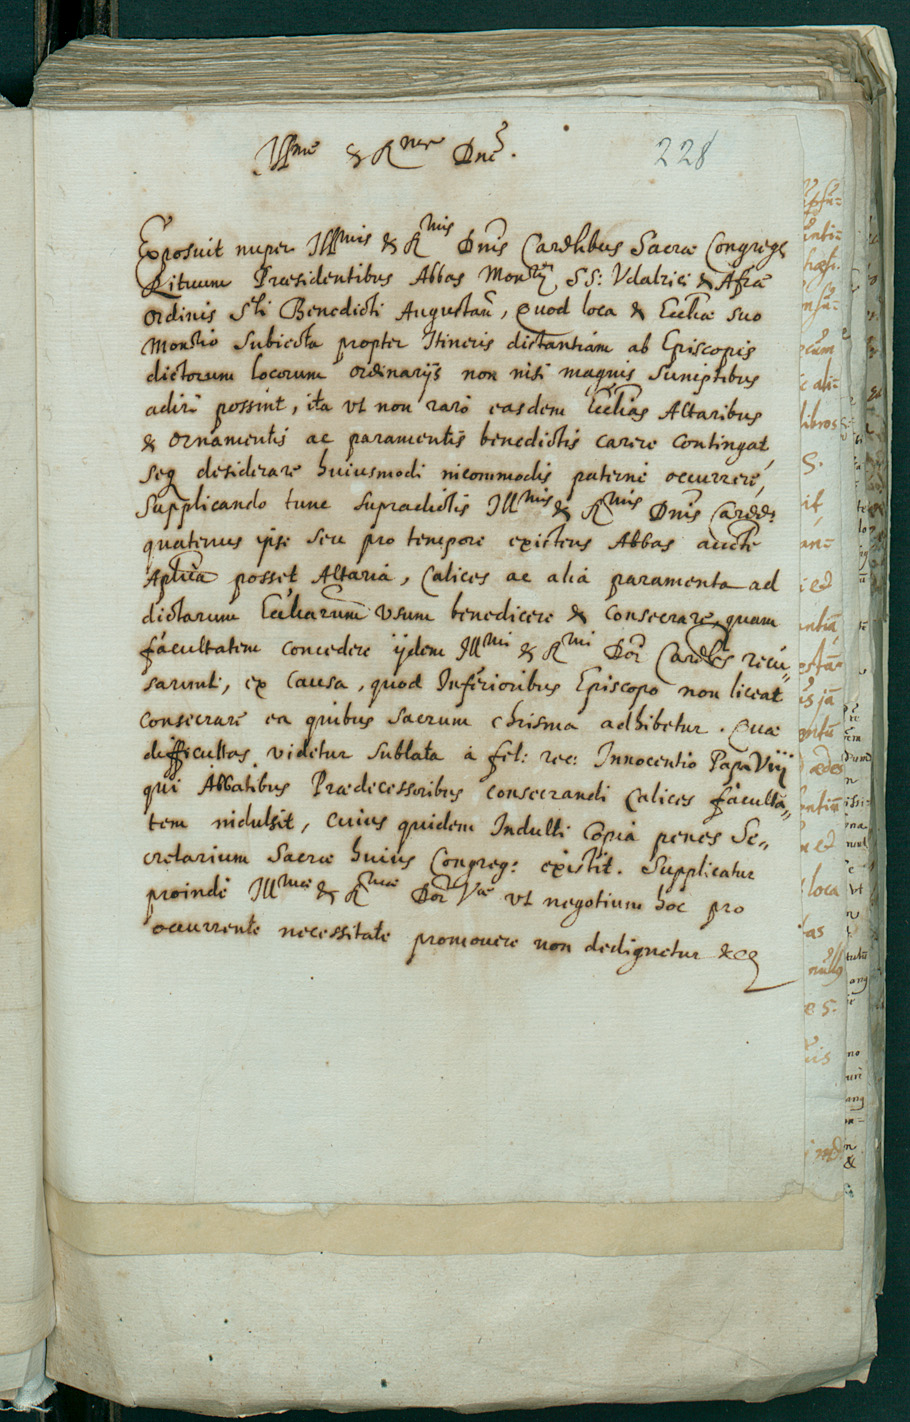 Illme & Rme Dne.
228
Exposuit nuper Illmis & Rmis Dnis Cardlibus Sacræ Congregs
Rituum Præsidentibus Abbas Monrij SS: Vdalrici & Afræ
Ordinis Sti Benedicti Augustan, Quod loca & Ecclæ suo
Monrio Subiecta propter Itineris distantiam ab Episcopis
dictorum locorum ordinarijs non nisi magnis sumptibus
adiri possint, ita vt non raro easdem Ecclias Altaribus
& ornamentis ac paramentis benedictis carere contingat,
seq desiderare huiusmodi incommodis paterne occurrere,
Supplicando tunc supradictis Illmis & Rmis Dnis Cardd:
quatenus ipse seu pro tempore existens Abbas aucte
Aplica posset Altaria, Calices ac alia paramenta ad
dictarum Eccliarum vsum benedicere & consecrare, quam
facultatem concedere ijdem Illmi & Rmi DD. Cardles recu„
sarunt, ex causa, quod Inferioribus Episcopo non liceat
consecrare ea quibus sacrum chrisma adhibetur. Quæ
difficultas videtur sublata a fel: rec: Innocentio Papa Viij
qui Abbatibus Prædecessoribus consecrandi Calices faculta„
tem indulsit, cuius quidem Indulti Copia penes Se„
cretarium Sacræ huius Congreg: existit. Supplicatur
proinde Illmæ & Rmæ D. Væ vt negotium hoc pro
occurrente necessitate promouere non dedignetur &c